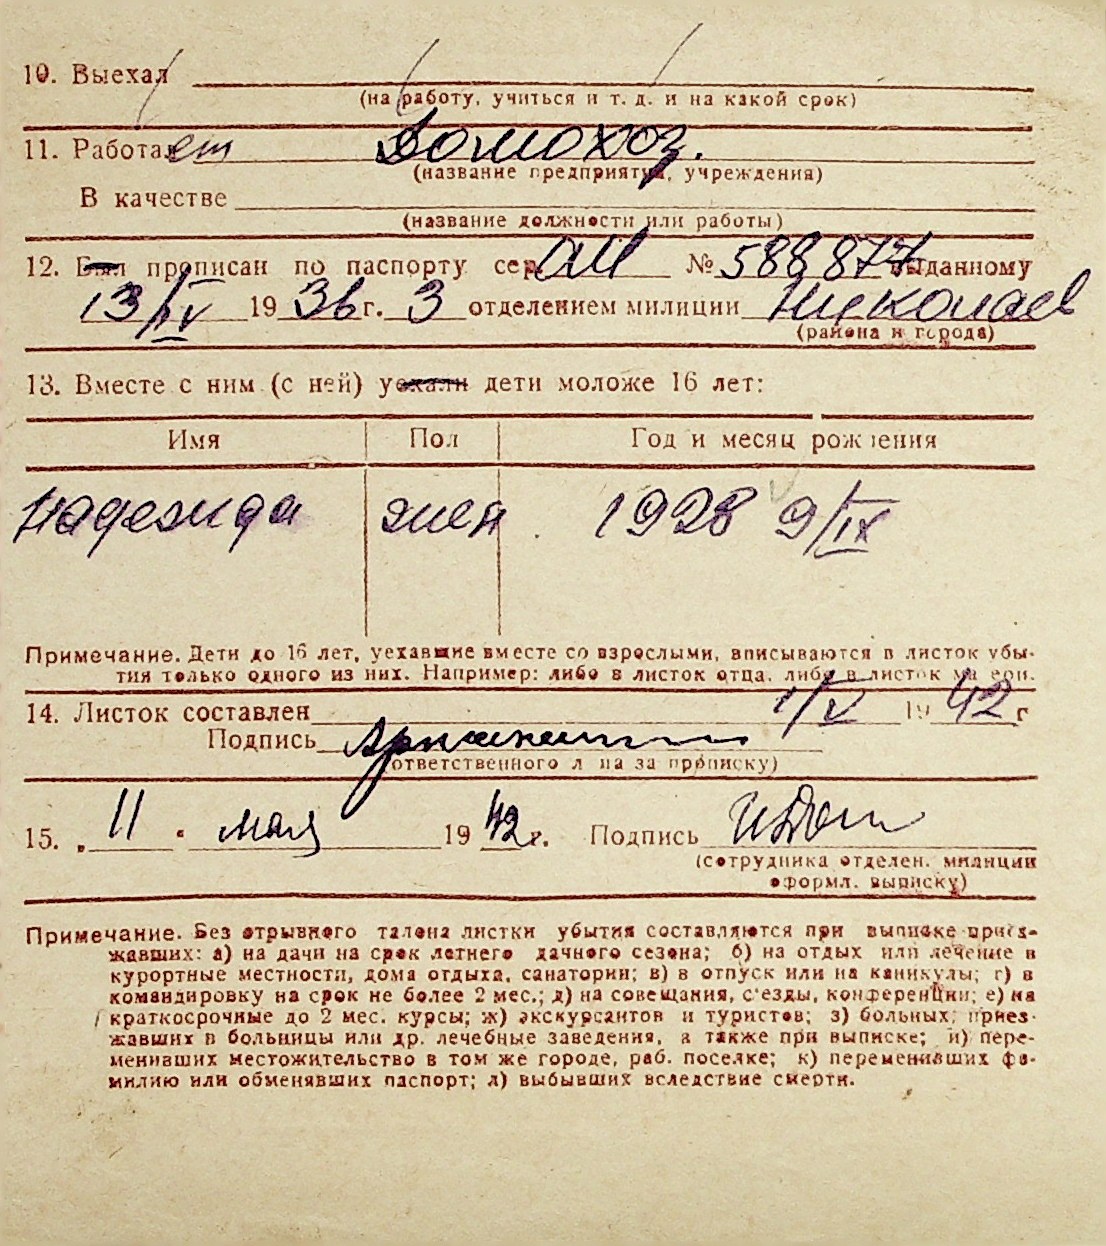 10. Выехал
(на работу, учиться и т. д. и на какой срок)
11. Работает Домохоз.
(название предприятия, учреждения)
В качестве
(название должности или работы)
12. Был прописан по паспорту сер. АМ № 588877 выданному
13/IV 1936 г. 3 отделением милиции Николаев
(района и города)
13. Вместе с ним (с ней) уехали дети моложе 16 лет:
Имя Пол Год и месяц рождения
Надежда жен. 1928 9/IX
Примечание. Дети до 16 лет, уехавшие вместе со взрослыми, вписываются в листок убы-
тия только одного из них. Например: либо в листок отца, либо в листок матери.
14. Листок составлен 1/V 1942 г
Подпись
(ответственного лица за прописку)
15. „11 " мая 1942 г. Подпись
(сотрудника отделен. милиции
оформл. выписку)
Примечание. Без отрывного талона листки убытия составляются при выписке приез-
жавших: а) на дачи на срок летнего дачного сезона; б) на отдых или лечение в
курортные местности, дома отдыха, санатории; в) в отпуск или на каникулы; г) в
командировку на срок не более 2 мес.; д) на совещания, с'езды, конференции; е) на
краткосрочные до 2 мес. курсы; ж) экскурсантов и туристов; з) больных, приез-
жавших в больницы или др. лечебные заведения, а также при выписке; и) пере-
менивших местожительство в том же городе, раб. поселке; к) переменивших фа-
милию или обменявших паспорт; л) выбывших вследствие смерти.